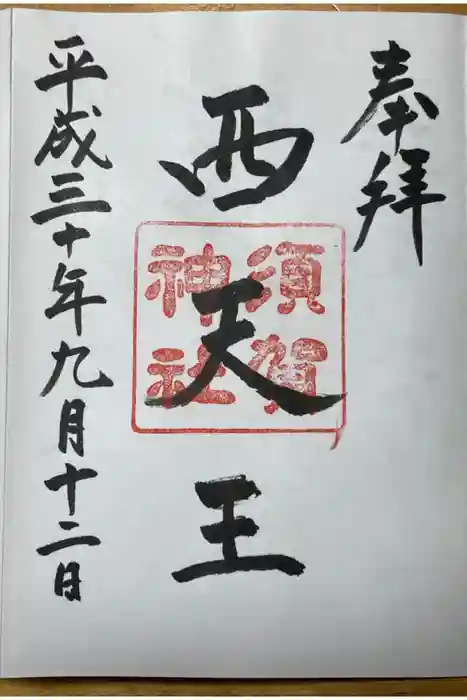 奉拝
西天王
須賀
神社
平成三十年九月十二日